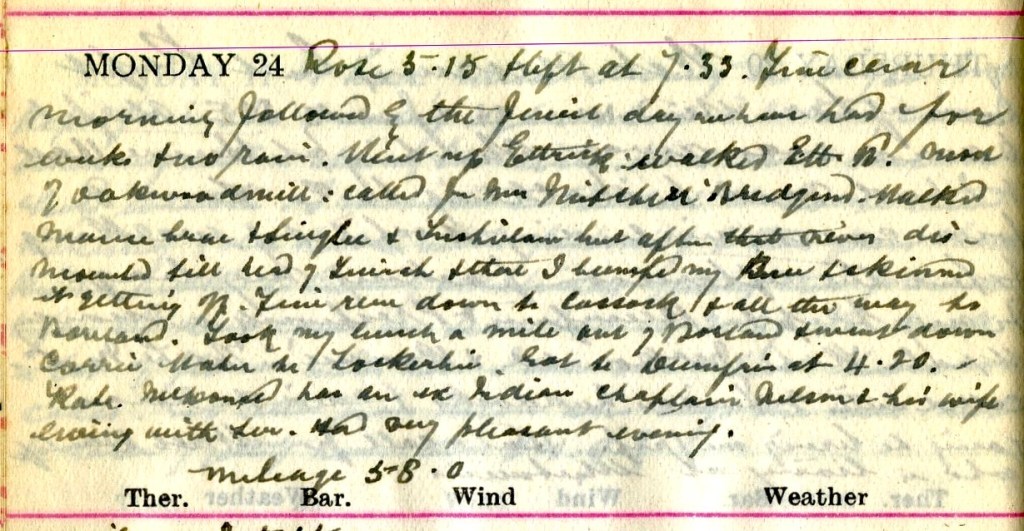 MONDAY 24 Rose 5.15 & left at 7.33. Fine clear
morning followed by the finest day we have had for
weeks & no rain. Went up Ettrick: walked Ett. B. most
of oakwoodmill: called for Mrs Mitchell Bridgend. Walked
Manse brae & Singlee & Tushielaw but after that never dis-
mounted till head of & there I bumped my knee & skinned
it getting off. Fine run down to Cassock & all the way to
Boreland. Took my lunch a mile out of Borland & went down
Corrie Water to Lockerbie. Got to Dumfries at 4.20. -
Kate has an ex Indian Chaplain Nelson & his wife
living with her. Had very pleasant evening.
Mileage 58.0
Ther. Bar. Wind Weather